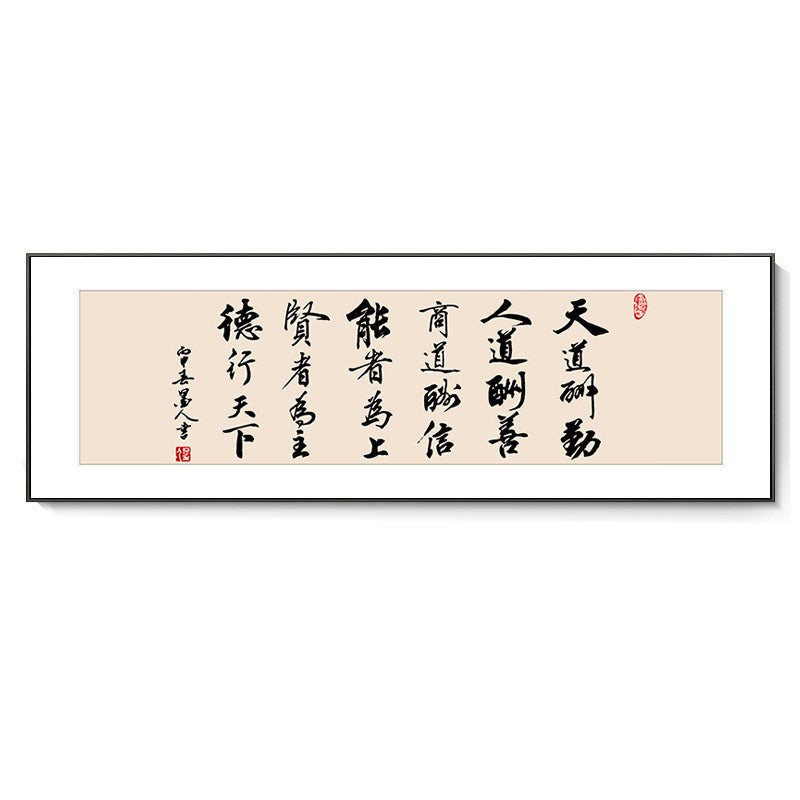 天道酬勤
人道酬善
商道酬信
能者為上
賢者為主
德行天下